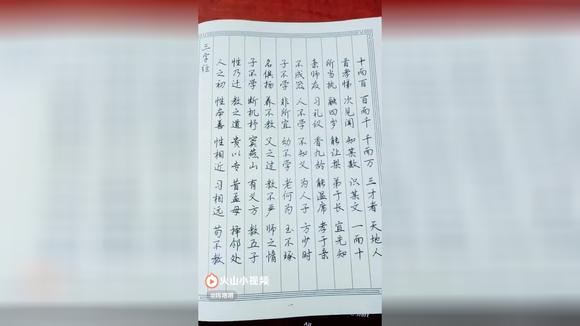 三字经
人之初 性本善 性相近 习相远 苟不教
性乃迁 教之道 贵以专 昔孟母 择邻处
子不学 断机杼 窦燕山 有义方 教五子
名俱扬 养不教 父之过 教不严 师之惰
子不学 非所宜 幼不学 老何为 玉不琢
不成器 人不学 不知义 为人子 方少时
亲师友 习礼仪 香九龄 能温席 孝于亲
所当执 融四岁 能让梨 弟于长 宜先知
首孝悌 次见闻 知某数 识某文 一而十
十而百 百而千 千而万 三才者 天地人
火山小视频